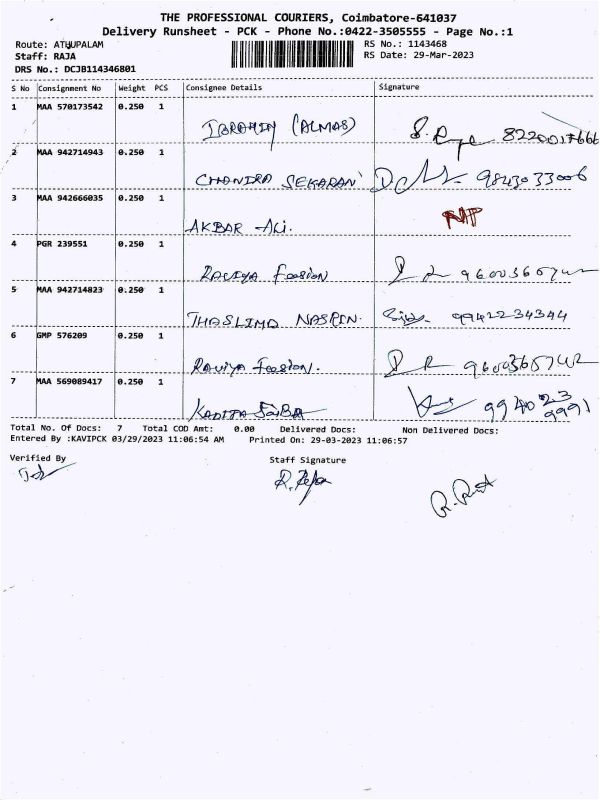 THE PROFESSIONAL COURIERS, Coimbatore-641037
Delivery Runsheet - PCK - Phone No.:0422-3505555 - Page No.:1
Route: ATHUPALAM
RS No.: 1143468
Staff: RAJA
RS Date: 29-Mar-2023
DRS No.: DCJB114346801
S No Consignment No Weight PCS Consignee Details Signature
1 MAA 570173542 0.250 1
IBRAHIM (ALMAS) 8220017666
2 MAA 942714943 0.250 1
CHANDRA SEKARAN 9843033006
3 MAA 942666035 0.250 1
AKBAR ALI.
4 PGR 239551 0.250 1
RAVIYA
5 MAA 942714823 0.250 1
THASLIMA NASRIN. 9942234344
6 GMP 576209 0.250 1
Raviya
7 MAA 569089417 0.250 1
9940239991
Total No. Of Docs: 7 Total COD Amt: 0.00 Delivered Docs: Non Delivered Docs:
Entered By :KAVIPCK 03/29/2023 11:06:54 AM Printed On: 29-03-2023 11:06:57
Verified By Staff Signature